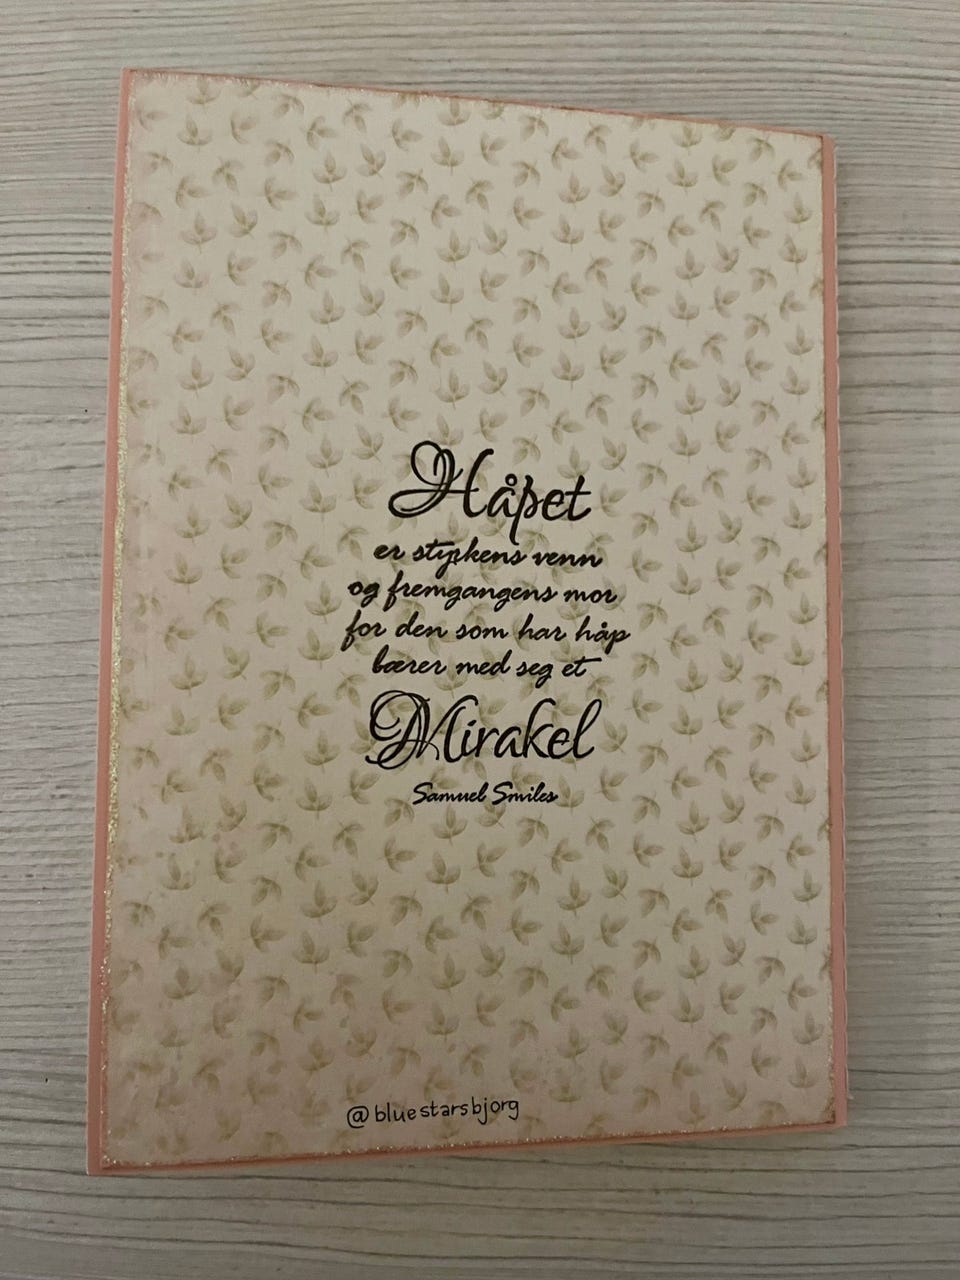 Håpet
er styrkens venn
og fremgangens mor
for den som har håp
bærer med seg et
Mirakel
Samuel Smiles
@bluestarsbjorg